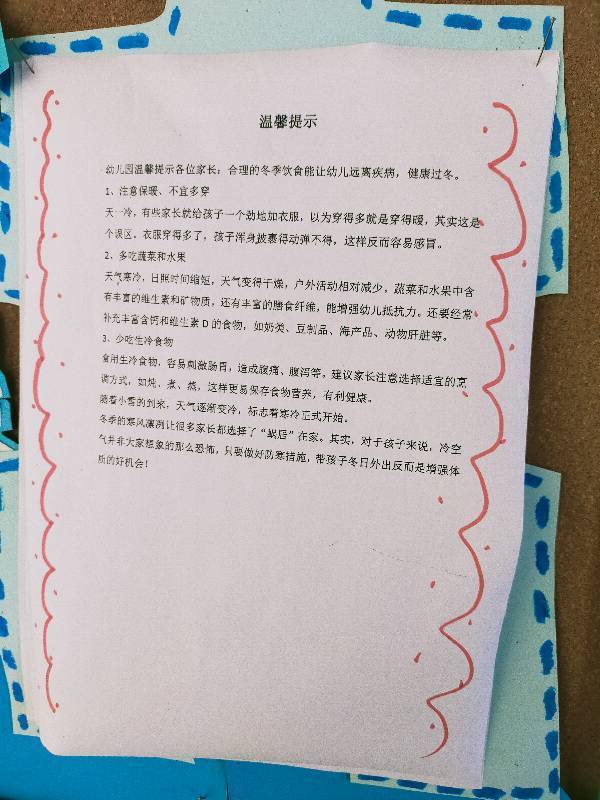 温馨提示
幼儿园温馨提示各位家长：合理的冬季饮食能让幼儿远离疾病，健康过冬。
1、注意保暖、不宜多穿
天一冷，有些家长就给孩子一个劲地加衣服，以为穿得多就是穿得暖，其实这是
个误区。衣服穿得多了，孩子浑身披裹得动弹不得，这样反而容易感冒。
2、多吃蔬菜和水果
天气寒冷，日照时间缩短，天气变得干燥，户外活动相对减少，蔬菜和水果中含
有丰富的维生素和矿物质，还有丰富的膳食纤维，能增强幼儿抵抗力。还要经常
补充丰富含钙和维生素 D 的食物，如奶类、豆制品、海产品、动物肝脏等。
3、少吃生冷食物
食用生冷食物，容易刺激肠胃，造成腹痛、腹泻等。建议家长注意选择适宜的烹
调方式，如炖、煮、蒸，这样更易保存食物营养，有利健康。
随着小雪的到来，天气逐渐变冷，标志着寒冷正式开始。
冬季的寒风凛冽让很多家长都选择了“蜗居”在家。其实，对于孩子来说，冷空
气并非大家想象的那么恐怖，只要做好防寒措施，带孩子冬日外出反而是增强体
质的好机会！